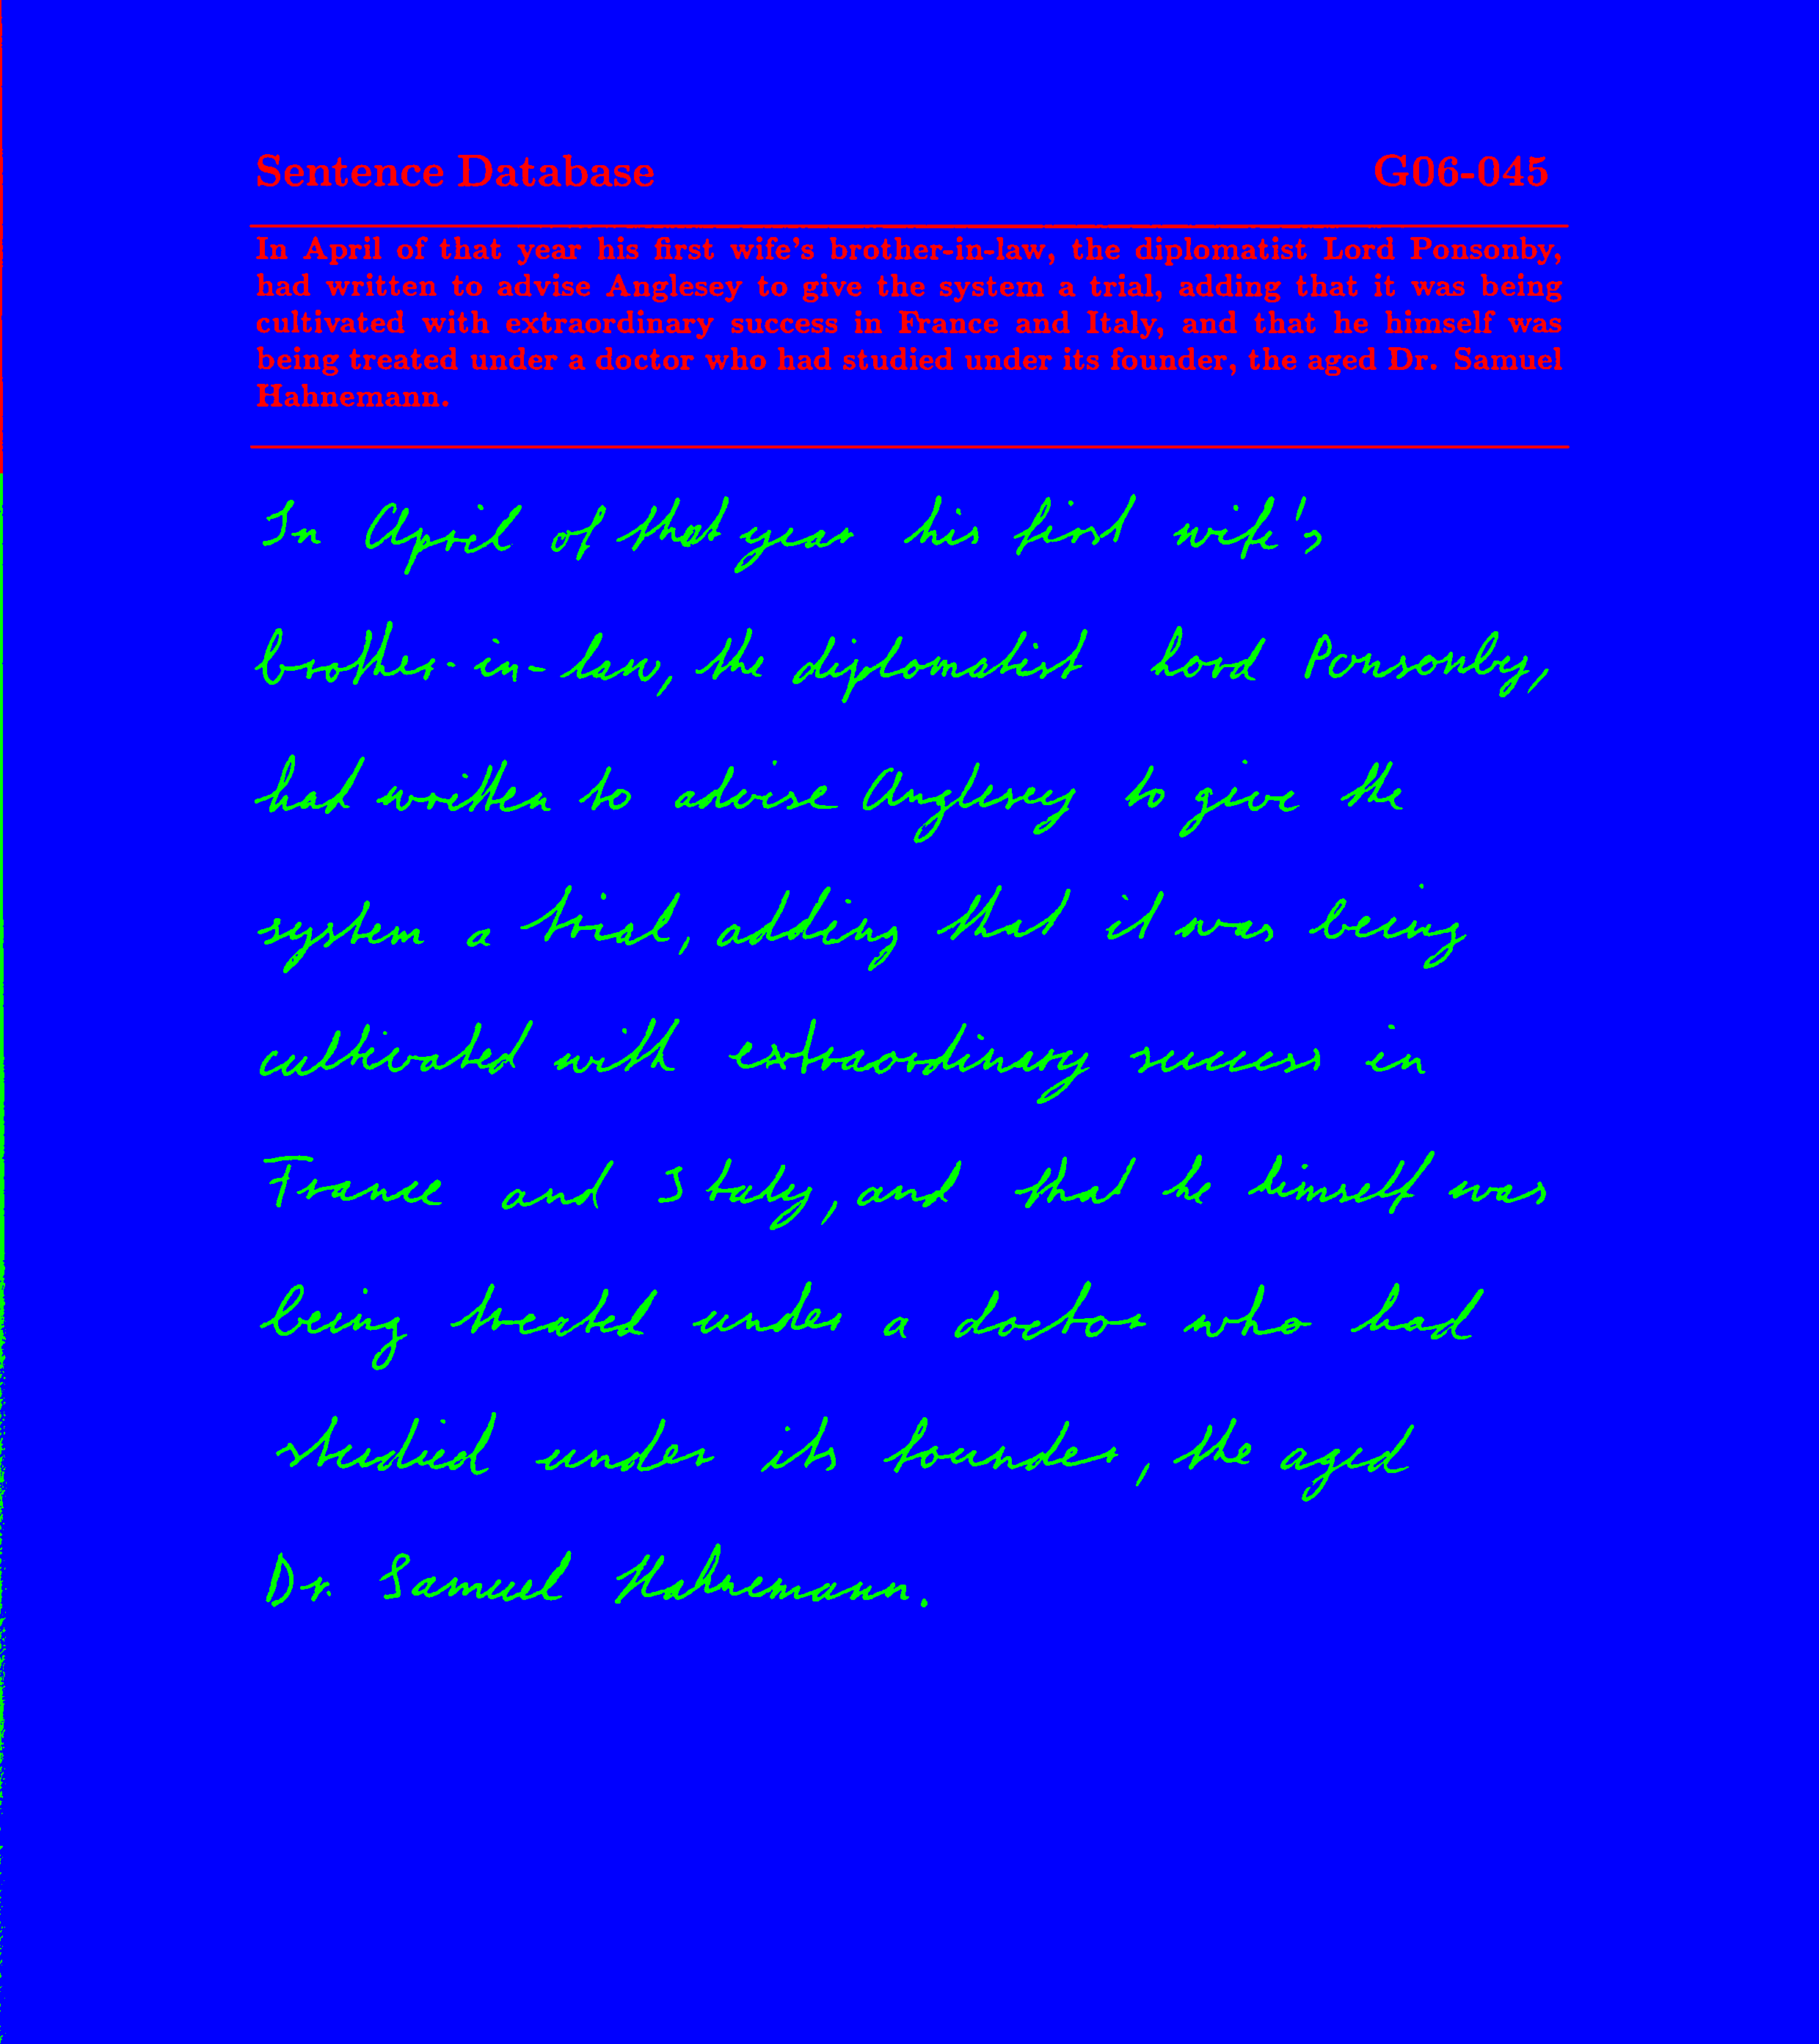 Sentence Database G06-045
In April of that year his first wife's brother-in-law, the diplomatist Lord Ponsonby,
had written to advise Anglesey to give the system a trial, adding that it was being
cultivated with extraordinary success in France and Italy, and that he himself was
being treated under a doctor who had studied under its founder, the aged Dr. Samuel
Hahnemann.
In April of that year his first wife's
brother-in-law, the diplomatist Lord Ponsonby,
had written to advise Anglesey to give the
system a trial, adding that it was being
cultivated with extraordinary success in
France and Italy, and that he himself was
being treated under a doctor who had
studied under its founder, the aged
Dr. Samuel Hahnemann.